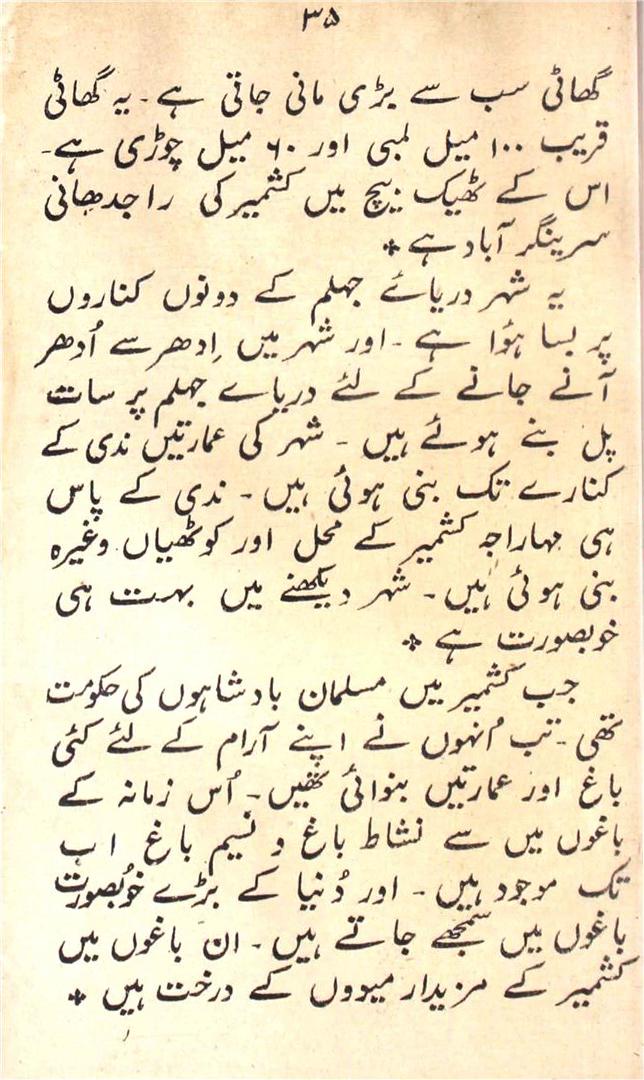 ۳۵
گھاٹی سب سے بڑی مانی جاتی ہے۔ یہ گھاٹی
قریب ۱۰۰ میل لمبی اور ۶۰ میل چوڑی ہے۔
اس کے ٹھیک بیچ میں کشمیر کی راجدھانی
سرینگر آباد ہے ٭
یہ شہر دریائے جہلم کے دونوں کناروں
پر بسا ہؤا ہے۔ اور شہر میں اِدھر سے اُدھر
آنے جانے کے لئے دریاے جہلم پر سات
پل بنے ہوئے ہیں۔ شہر کی عمارتیں ندی کے
کنارے تک بنی ہوئی ہیں۔ ندی کے پاس
ہی مہاراجہ کشمیر کے محل اور کوٹھیاں وغیرہ
بنی ہوئی ہیں۔ شہر دیکھنے میں بہت ہی
خوبصورت ہے ٭
جب کشمیر میں مسلمان بادشاہوں کی حکومت
تھی۔ تب اُنہوں نے اپنے آرام کے لئے کئی
باغ اور عمارتیں بنوائی تھیں۔ اُس زمانہ کے
باغوں میں سے نشاط باغ و نسیم باغ اب
تک موجود ہیں۔ اور دُنیا کے بڑے خوُبصورت
باغوں میں سمجھے جاتے ہیں۔ ان باغوں میں
کشمیر کے مزیدار میووں کے درخت ہیں ٭